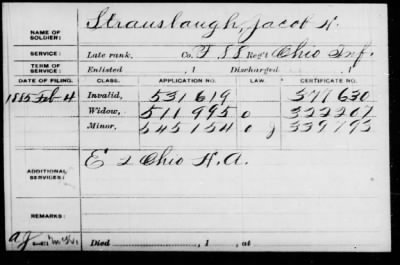 NAME OF SOLDIER: Strauslaugh, Jacob H.
SERVICE: Late rank, Co. F 55 Reg't Ohio Inf.
TERM OF SERVICE: Enlisted , 1 Discharged , 1
DATE OF FILING. CLASS. APPLICATION NO. LAW. CERTIFICATE NO.
1885 Feb 4 Invalid, 531 619 377 630
Widow, 511 995
Minor, 545 154
ADDITIONAL SERVICES: E 2 Ohio H.A.
REMARKS:
Died , 1 , at